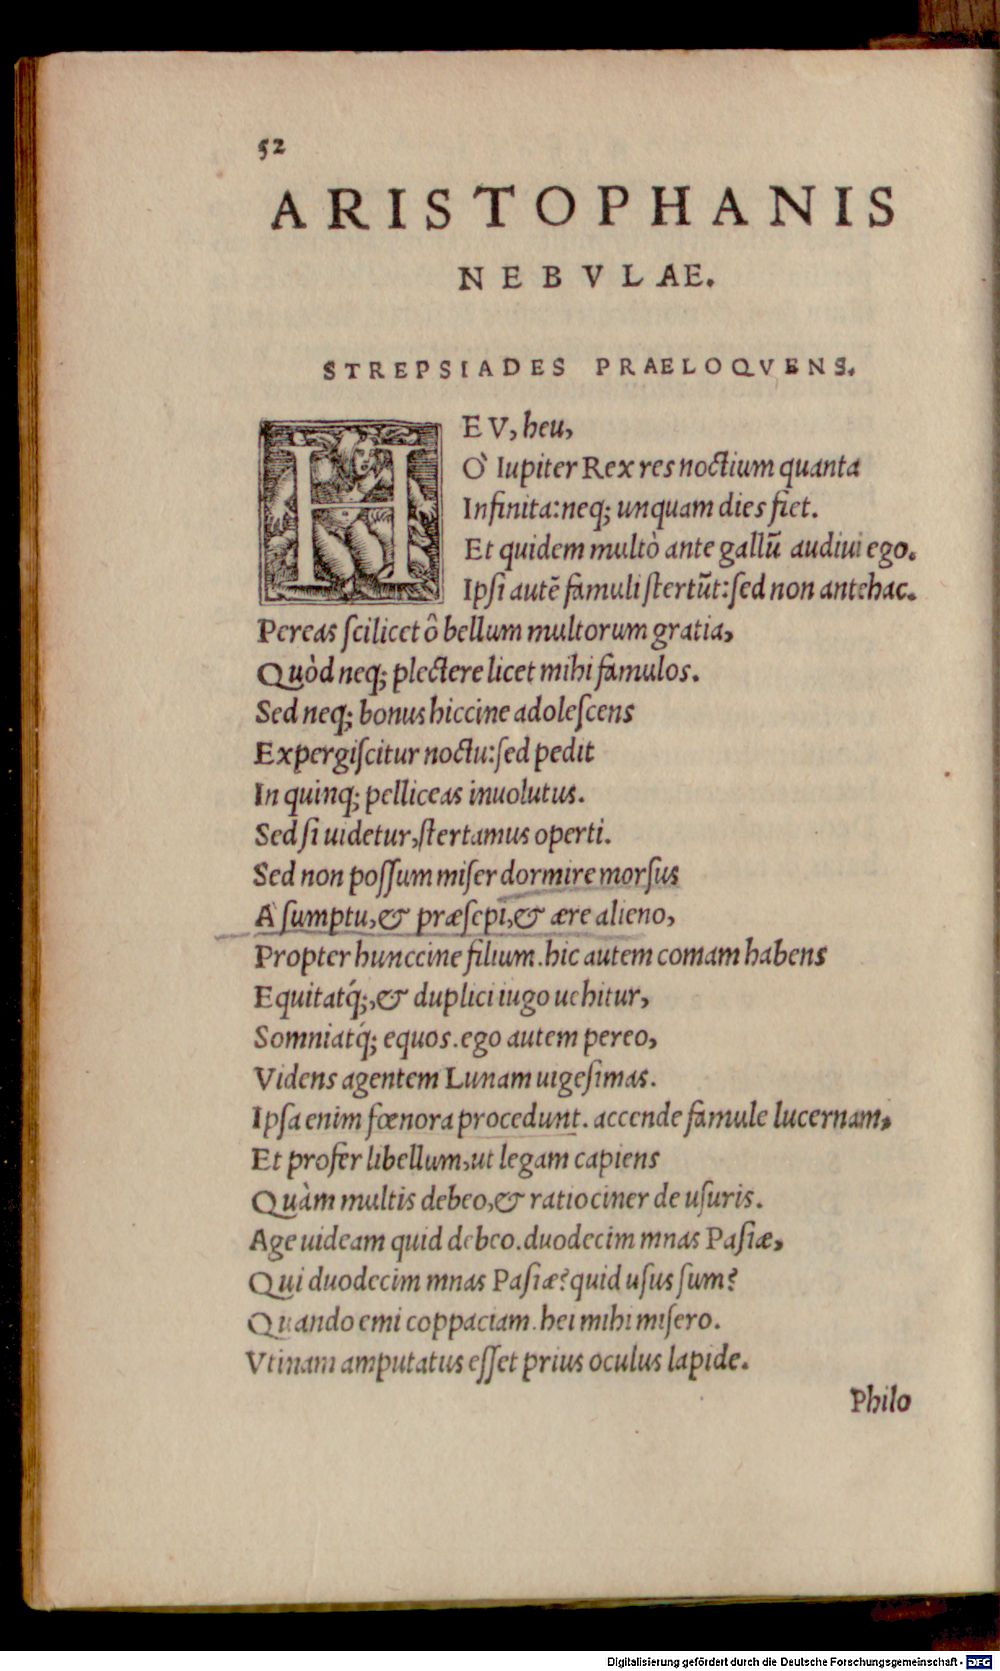 52
ARISTOPHANIS
NEBVLAE.
STREPSIADES PRAELOQVENS.
HEV, heu,
O` Iupiter Rex res noctium quanta
Infinita: neq; unquam dies fiet.
Et quidem multò ante gallū audiui ego.
Ipſi autē famuli ſtertūt: ſed non antehac.
Pereas ſcilicet ô bellum multorum gratia,
Quòd neq; plectere licet mihi famulos.
Sed neq; bonus hiccine adoleſcens
Expergiſcitur noctu: ſed pedit
In quinq; pelliceas inuolutus.
Sed ſi uidetur, ſtertamus operti.
Sed non poſſum miſer dormire morſus
A` ſumptu, & præſepi, & ære alieno,
Propter hunccine filium. hic autem comam habens
Equitatq́;, & duplici iugo uehitur,
Somniatq́; equos. ego autem pereo,
Videns agentem Lunam uigeſimas.
Ipſa enim fœnora procedunt. accende famule lucernam,
Et profer libellum, ut legam capiens
Quàm multis debeo, & ratiociner de uſuris.
Age uideam quid debeo. duodecim mnas Paſiæ,
Qui duodecim mnas Paſiæ? quid uſus ſum?
Quando emi coppaciam. hei mihi miſero.
Vtinam amputatus eſſet prius oculus lapide.
Philo
Digitalisierung gefördert durch die Deutsche Forschungsgemeinschaft - DFG